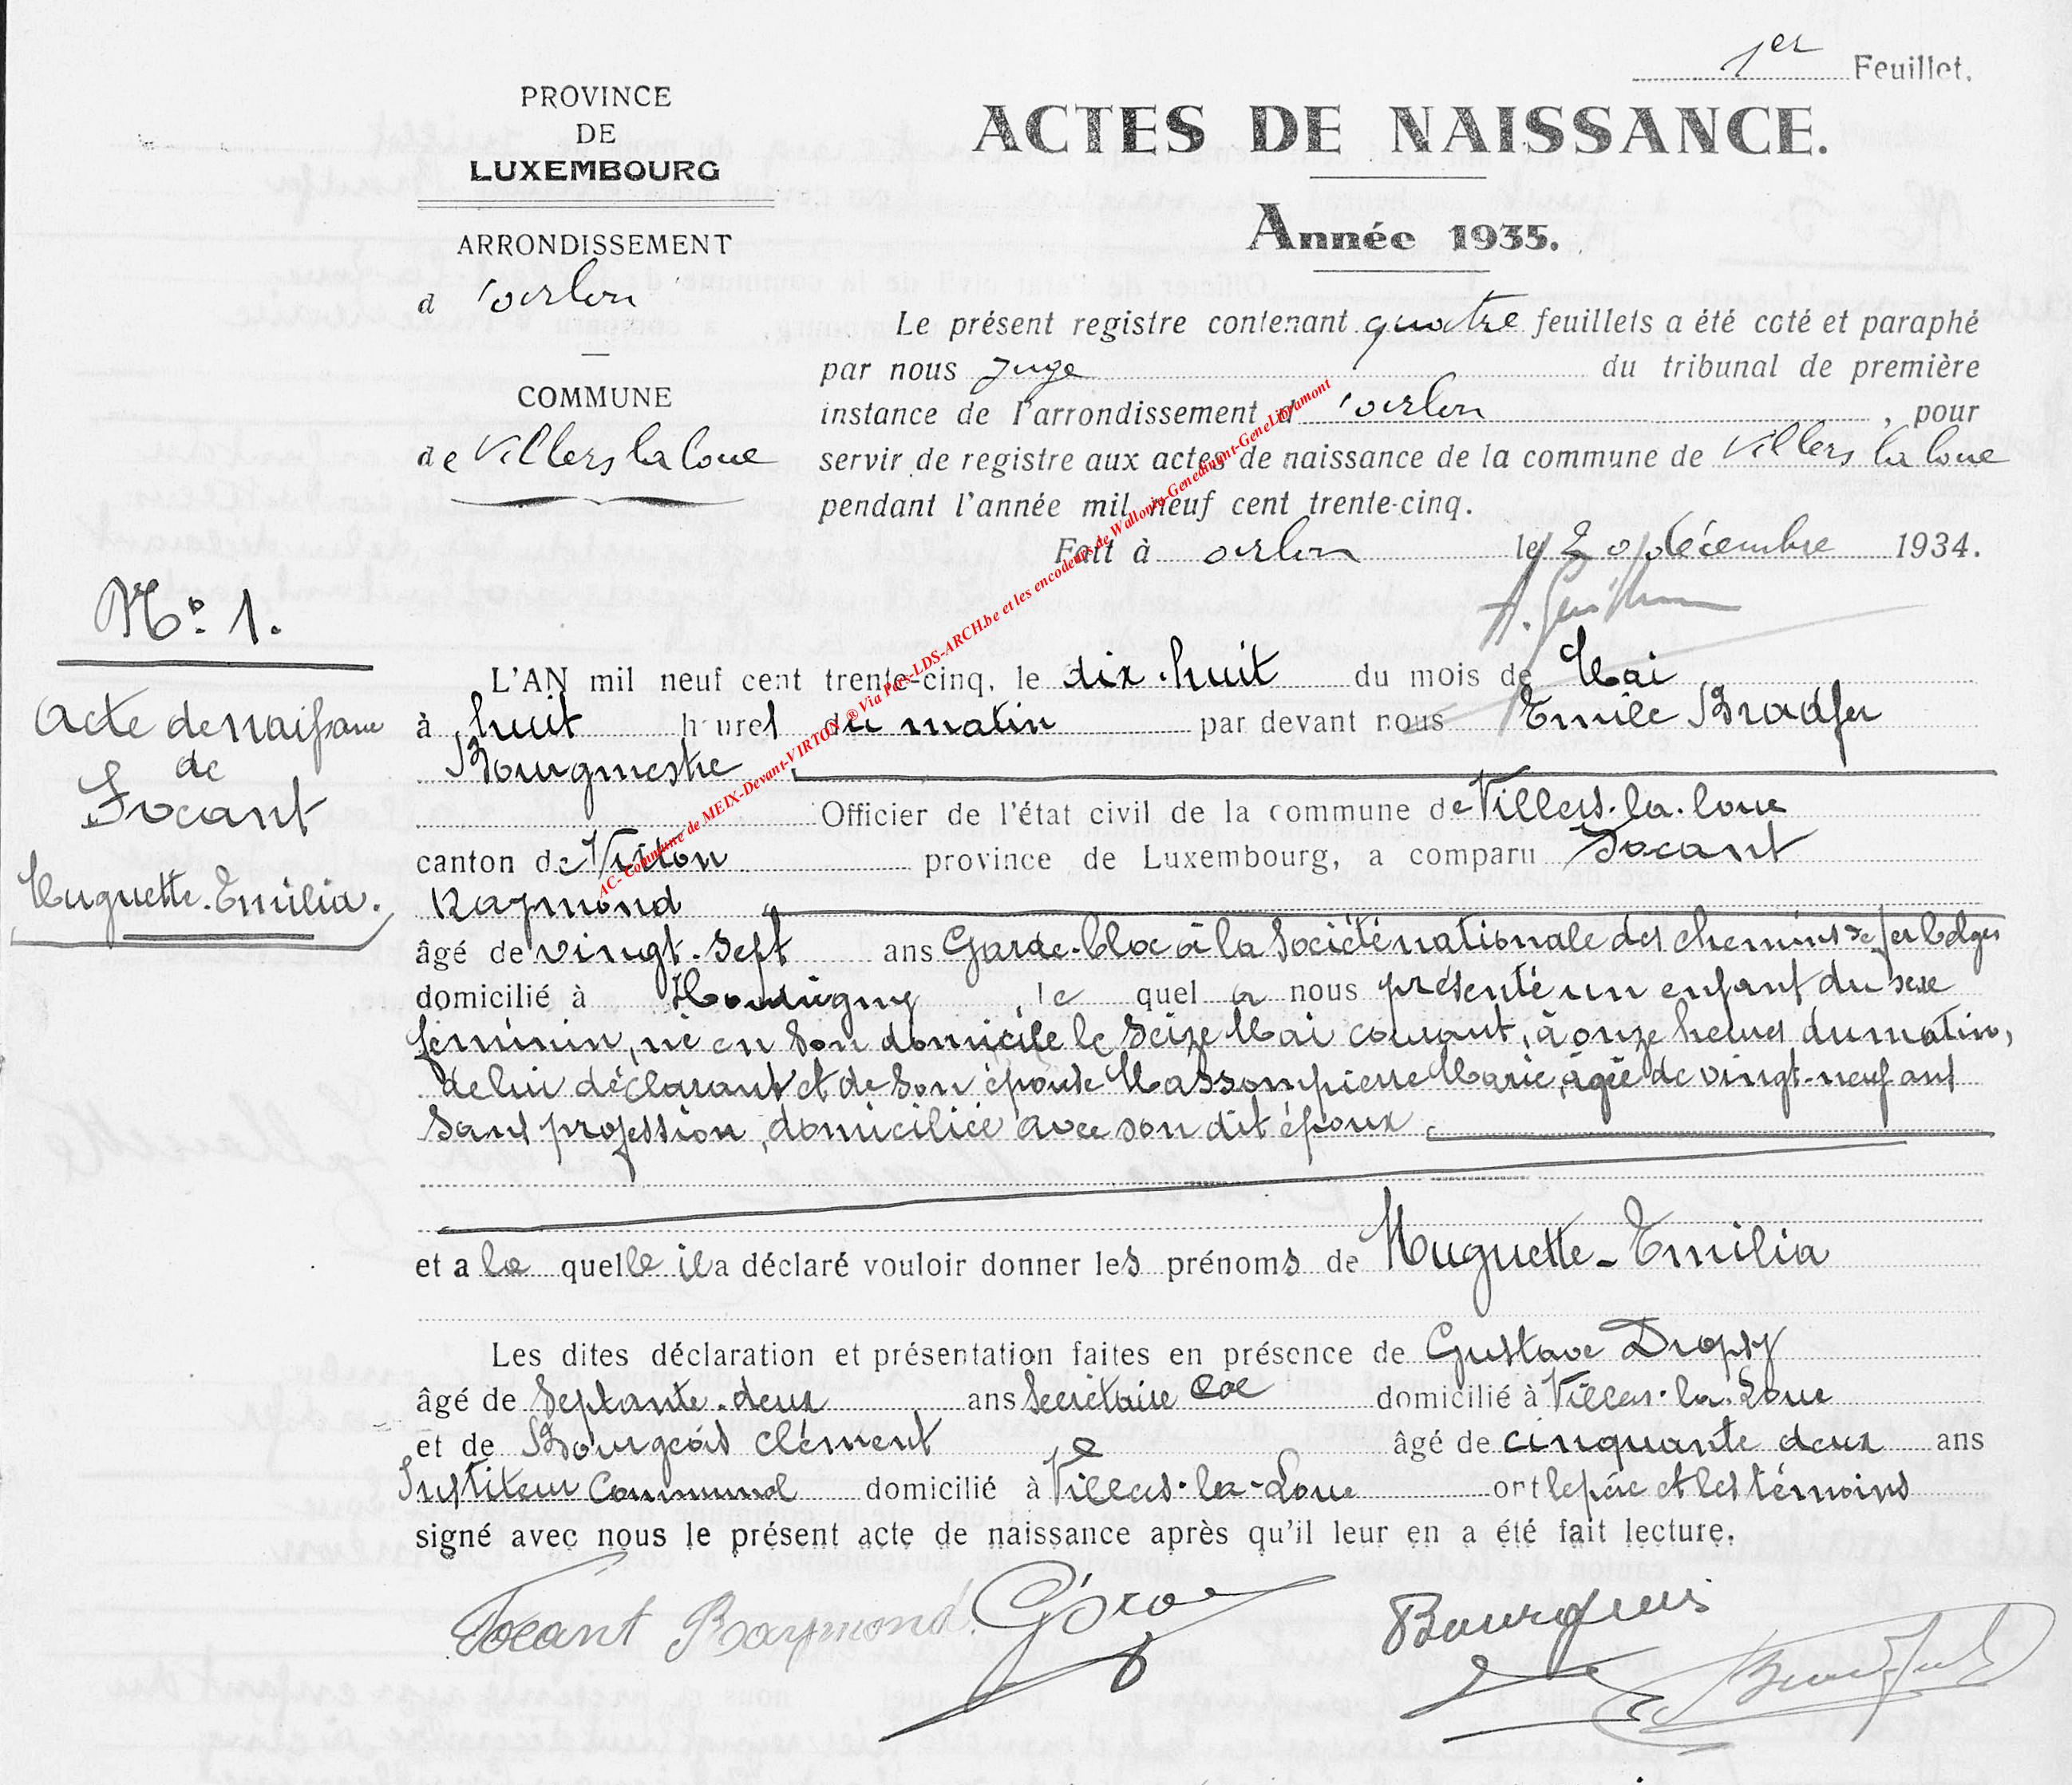 1er Feuillet.
PROVINCE
DE
LUXEMBOURG
ARRONDISSEMENT
d'Arlon
COMMUNE
de Villers la Loue
ACTES DE NAISSANCE.
Année 1935.
Le présent registre contenant quatre feuillets a été coté et paraphé
par nous Juge du tribunal de première
instance de l'arrondissement d'Arlon, pour
servir de registre aux actes de naissance de la commune de Villers la Loue
pendant l'année mil neuf cent trente-cinq.
Fait à Arlon le 20 décembre 1934.
No. 1.
Acte de naissance
de
Focant
Huguette-Emilia.
L'AN mil neuf cent trente-cinq, le dix-huit du mois de Mai
à huit heures du matin par devant nous Emile Bradfer
Bourgmestre
Officier de l'état civil de la commune de Villers-la-Loue
canton de Virton province de Luxembourg, a comparu Focant
Raymond
âgé de vingt-sept ans Garde-bloc à la Société nationale des chemins de fer belges
domicilié à Houdrigny, le quel a nous présenté un enfant du sexe
féminin, né en son domicile le seize Mai courant, à onze heures du matin,
de lui déclarant et de son épouse Massompierre Marie, âgée de vingt-neuf ans
sans profession, domiciliée avec son dit époux.
et a la quelle il a déclaré vouloir donner les prénoms de Huguette-Emilia
Les dites déclaration et présentation faites en présence de Gustave Dropsy
âgé de septante-deux ans Secrétaire Cal domicilié à Villers-la-Loue
et de Bourgeois Clément âgé de cinquante deux ans
Instituteur Communal domicilié à Villers-la-Loue ont le père et les témoins
signé avec nous le présent acte de naissance après qu'il leur en a été fait lecture.
Focant Raymond. Bourgeois
AC- Commune de MEIX-Devant-VIRTON ® Via Pars-LDS-ARCH.be et les encodeurs de Wallonia-Genedinant-GeneLibramont